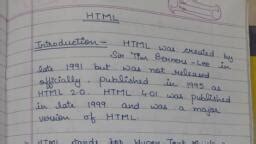 HTML
Introduction - HTML was created by
Sir Tim Berners-Lee in
late 1991 but was not released
officially. published in 1995 as
HTML 2.0. HTML 4.01 was published
in late 1999 and was a major
version of HTML.
HTML stands for Hyper Text